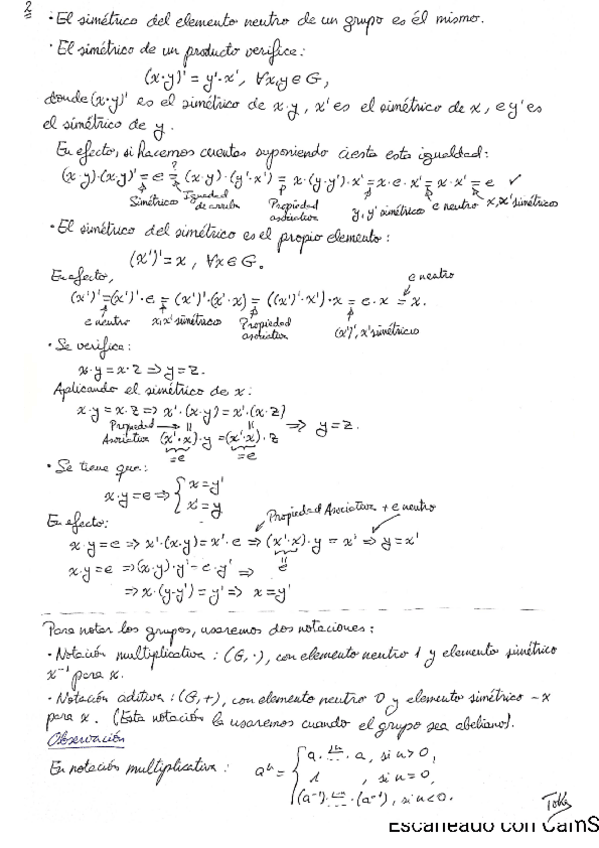 2
· El simétrico del elemento neutro de un grupo es él mismo.
· El simétrico de un producto verifica:
(x·y)' = y'·x', ∀x,y∈G,
donde (x·y)' es el simétrico de x·y, x' es el simétrico de x, e y' es
el simétrico de y.
En efecto, si hacemos cuentas suponiendo cierta esta igualdad:
(x·y)·(x·y)' = e ?= (x·y)·(y'·x') = x·(y·y')·x' = x·e·x' = x·x' = e ✓
Simétrico Igualdad de arriba Propiedad asociativa y, y' simétricos e neutro x,x' simétricos
· El simétrico del simétrico es el propio elemento:
(x')' = x, ∀x∈G.
En efecto,
e neutro
(x')' = (x')'·e = (x')'·(x'·x) = ((x')'·x')·x = e·x = x.
e neutro x,x' simétricos Propiedad asociativa (x')', x' simétricos
· Se verifica:
x·y = x·z ⇒ y = z.
Aplicando el simétrico de x:
x·y = x·z ⇒ x'·(x·y) = x'·(x·z)
Propiedad → || || ⇒ y = z.
Asociativa (x'·x)·y = (x'·x)·z
=e =e
· Se tiene que:
x·y = e ⇒ { x = y'
x' = y
En efecto:
Propiedad Asociativa + e neutro
x·y = e ⇒ x'·(x·y) = x'·e ⇒ (x'·x)·y = x' ⇒ y = x'
x·y = e ⇒ (x·y)·y' = e·y' ⇒ e
⇒ x·(y·y') = y' ⇒ x = y'
Para notar los grupos, usaremos dos notaciones:
· Notación multiplicativa: (G,·), con elemento neutro 1 y elemento simétrico
x⁻¹ para x.
· Notación aditiva: (G,+), con elemento neutro 0 y elemento simétrico -x
para x. (Esta notación la usaremos cuando el grupo sea abeliano).
Observación
En notación multiplicativa: aⁿ = { a· ⁿ⁾... ·a, si n>0,
1, si n=0,
(a⁻¹)· ... ·(a⁻¹), si n<0.
Escaneado con CamS